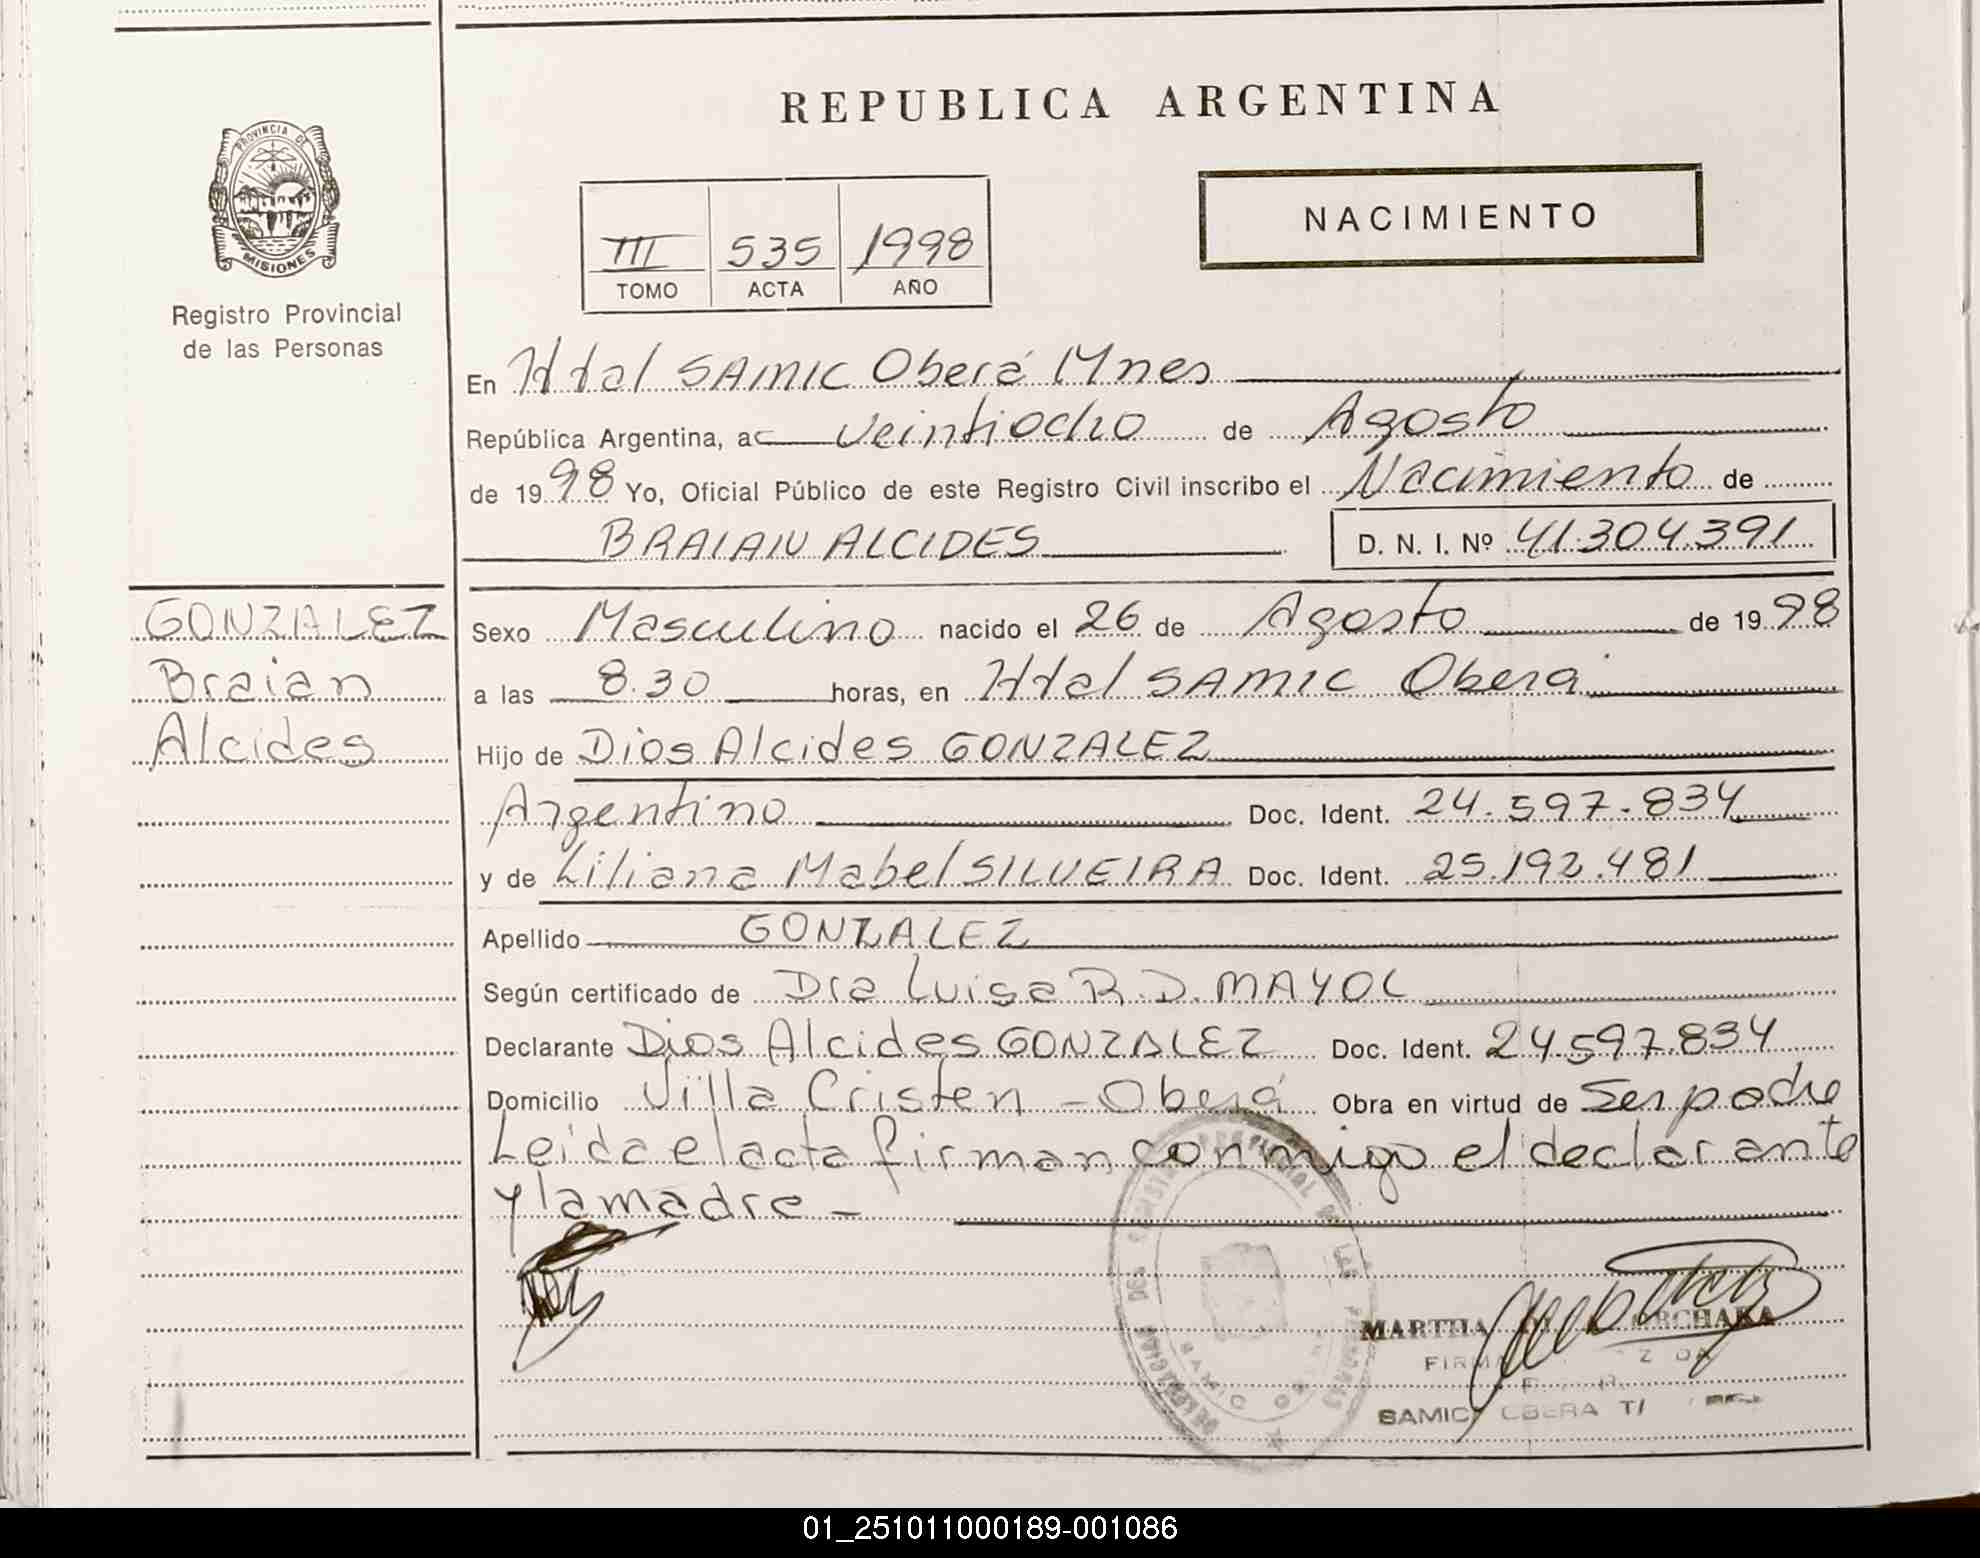 REPUBLICA ARGENTINA
PROVINCIA DE
MISIONES
Registro Provincial
de las Personas
NACIMIENTO
III 535 1998
TOMO ACTA AÑO
En Htal SAMIC Oberá Mnes
República Argentina, a veintiocho de Agosto
de 1998 Yo, Oficial Público de este Registro Civil inscribo el Nacimiento de
BRAIAN ALCIDES D. N. I. Nº 41.304.391
GONZALEZ
Braian
Alcides
Sexo Masculino nacido el 26 de Agosto de 1998
a las 8.30 horas, en Htal SAMIC Oberá
Hijo de Dios Alcides GONZALEZ
Argentino Doc. Ident. 24.597.834
y de Liliana Mabel SILVEIRA Doc. Ident. 25.192.481
Apellido GONZALEZ
Según certificado de Dra Luisa R.D. MAYOL
Declarante Dios Alcides GONZALEZ Doc. Ident. 24.597.834
Domicilio Villa Cristen - Oberá Obra en virtud de Ser padre
Leída el acta firman conmigo el declarante
y la madre -
MARTHA
SAMIC OBERA
01_251011000189-001086